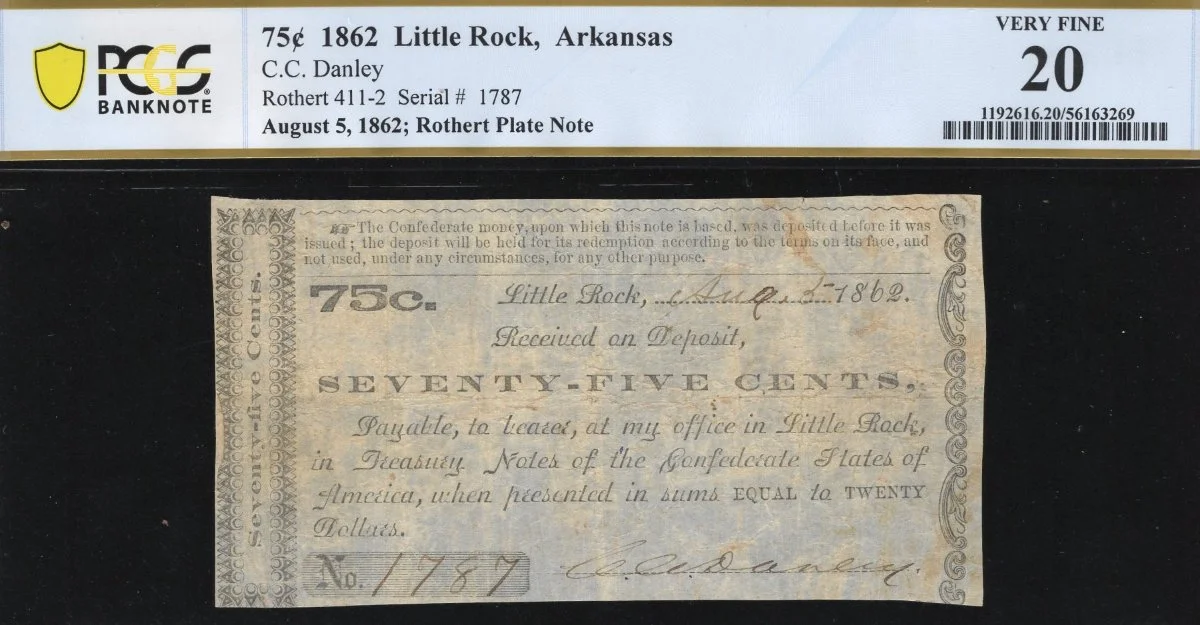 PCGS
BANKNOTE
75¢ 1862 Little Rock, Arkansas
C.C. Danley
Rothert 411-2 Serial # 1787
August 5, 1862; Rothert Plate Note
VERY FINE
20
1192616.20/56163269
Seventy-five Cents.
The Confederate money, upon which this note is based, was deposited before it was
issued; the deposit will be held for its redemption according to the terms on its face, and
not used, under any circumstances, for any other purpose.
75c. Little Rock, Aug. 5 1862.
Received on Deposit,
SEVENTY-FIVE CENTS,
Payable, to bearer, at my office in Little Rock,
in Treasury Notes of the Confederate States of
America, when presented in sums EQUAL to TWENTY
Dollars.
No. 1787 C.C. Danley.